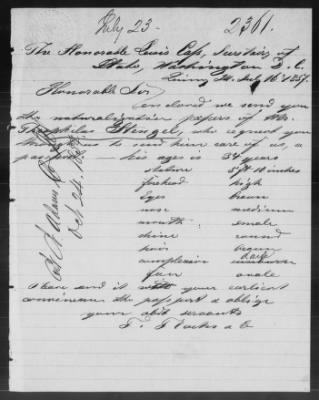 July 23 - 2361.
The Honorable Lewis Cass, Secretary of
State, Washington D. C.
Quincy Ill. July 16th 1857.
Honorable Sir,
enclosed we send you
the naturalization papers of Mr.
Theophilus Stengel, who request you
to send him care of us, a
passport — his ages is 34 years
stature 5 ft 10 inches
forhead high
Eyes brown
nose medium
mouth smale
chine round
hair brown
complexion
face ovale
have and it with your earliest
convinience the passport & oblige
your obt servants
& Co
Oct 24.